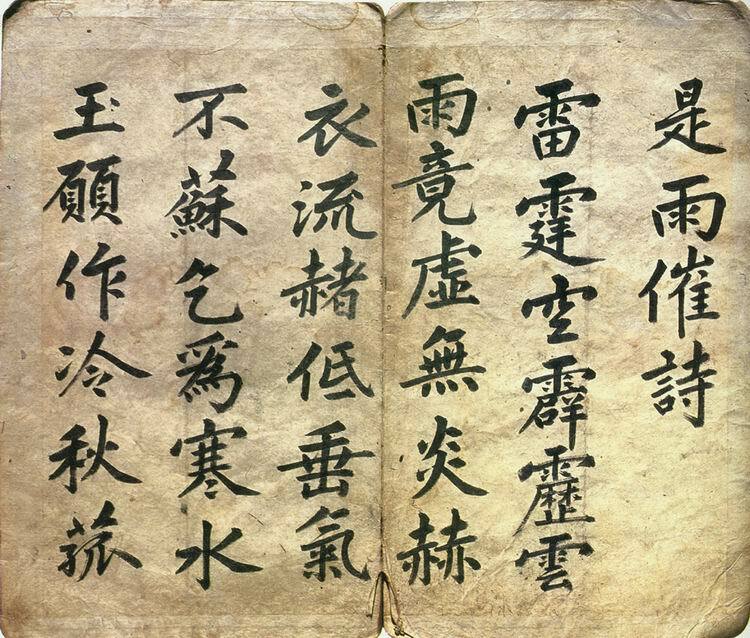 是雨催詩
雷霆空霹靂雲
雨竟虛無炎赫
衣流赭低垂氣
不蘇乞爲寒水
玉願作冷秋菰